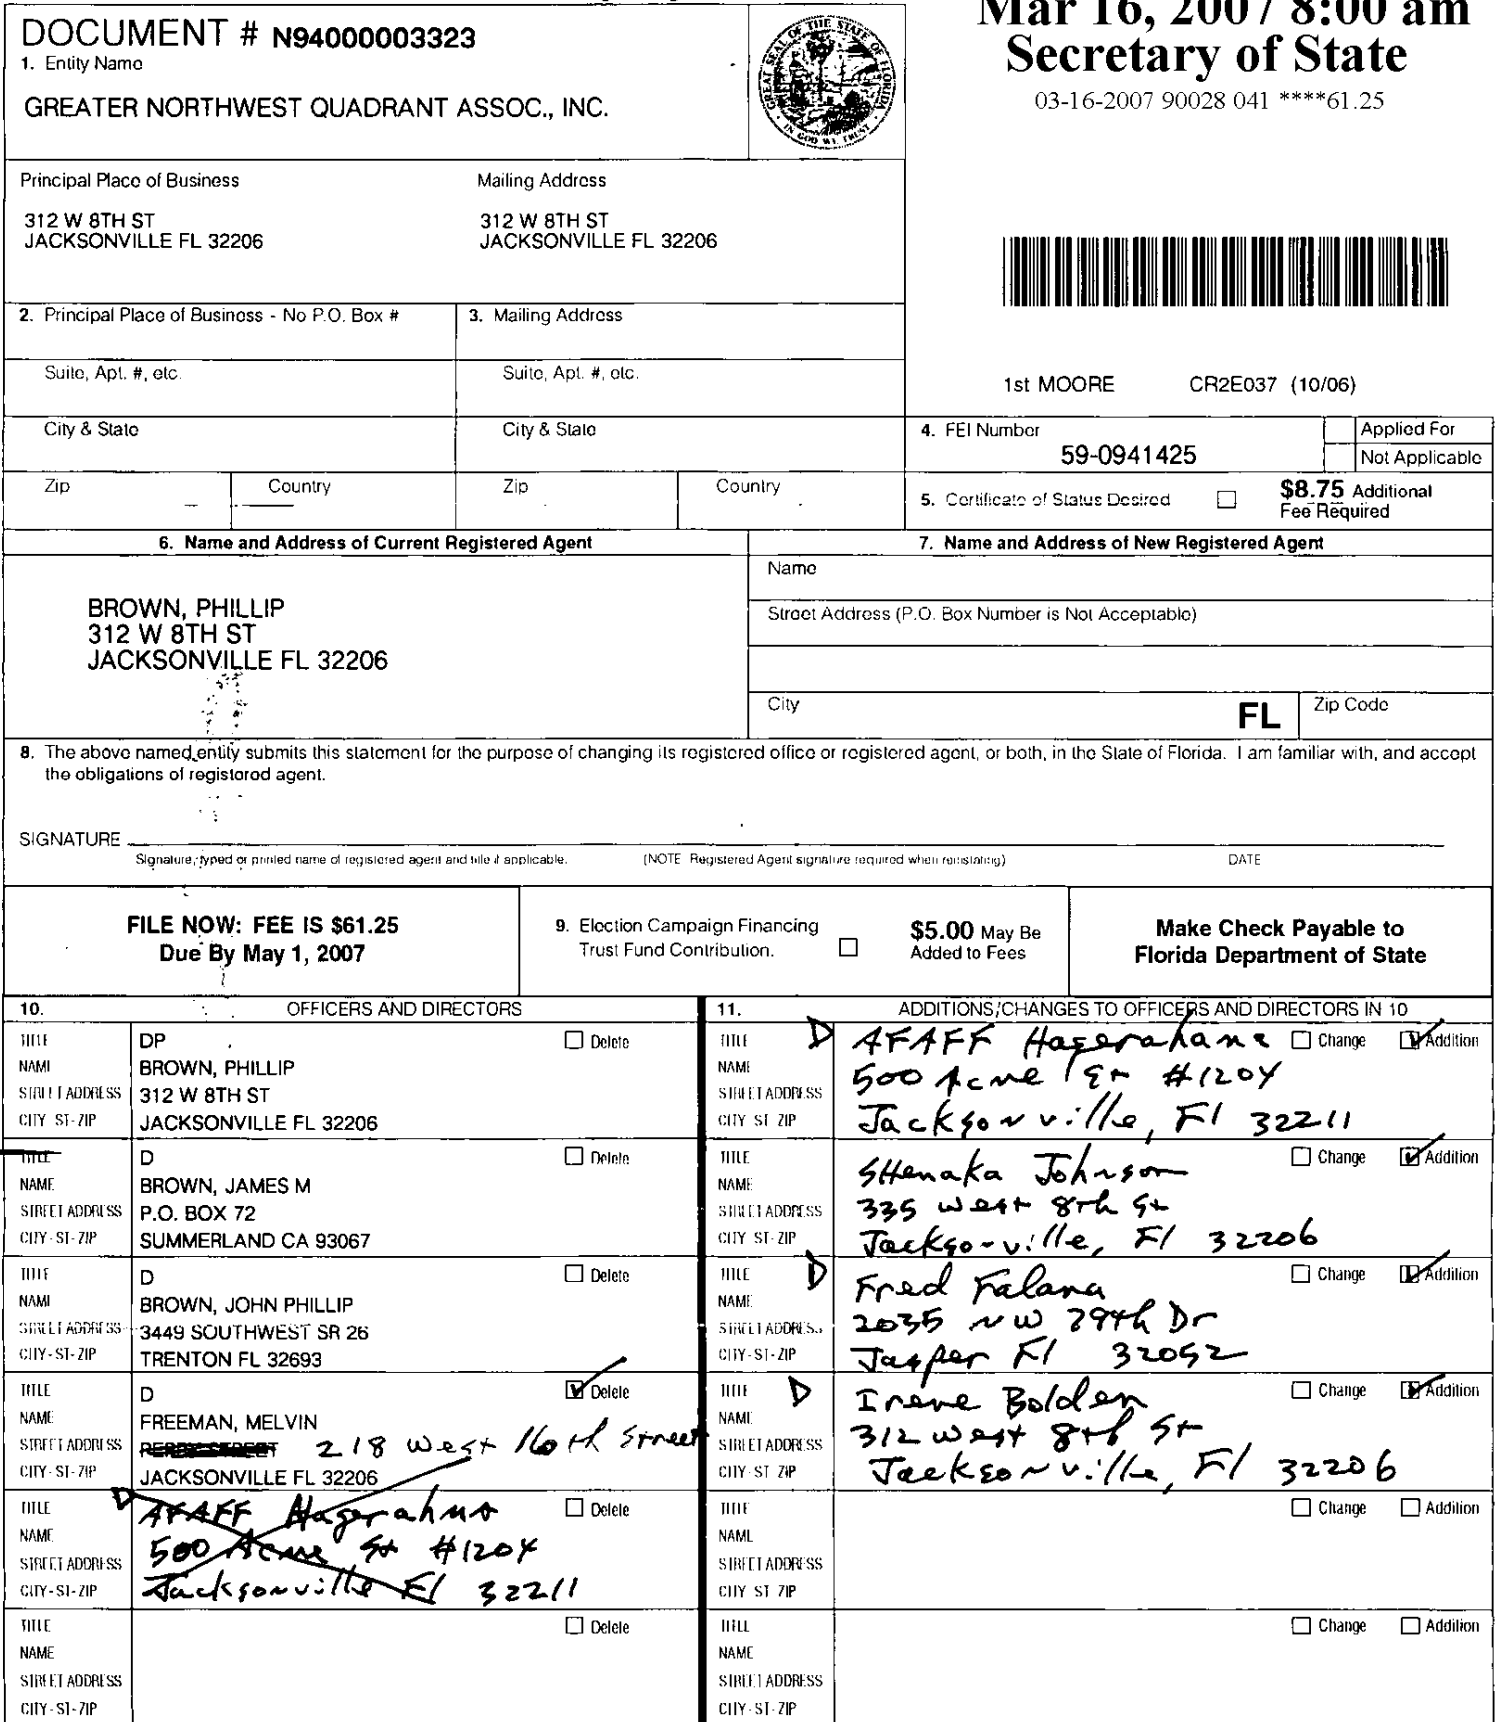 Mar 16, 2007 8:00 am
Secretary of State
03-16-2007 90028 041 ****61.25
DOCUMENT # N94000003323
1. Entity Name
GREATER NORTHWEST QUADRANT ASSOC., INC.
GREAT SEAL OF THE STATE OF FLORIDA
IN GOD WE TRUST
Principal Place of Business
312 W 8TH ST
JACKSONVILLE FL 32206
Mailing Address
312 W 8TH ST
JACKSONVILLE FL 32206
2. Principal Place of Business - No P.O. Box #
3. Mailing Address
Suite, Apt. #, etc.
Suite, Apt. #, etc.
1st MOORE CR2E037 (10/06)
City & State
City & State
4. FEI Number
59-0941425
Applied For
Not Applicable
Zip
Country
Zip
Country
5. Certificate of Status Desired
$8.75 Additional
Fee Required
6. Name and Address of Current Registered Agent
BROWN, PHILLIP
312 W 8TH ST
JACKSONVILLE FL 32206
7. Name and Address of New Registered Agent
Name
Street Address (P.O. Box Number is Not Acceptable)
City
FL
Zip Code
8. The above named entity submits this statement for the purpose of changing its registered office or registered agent, or both, in the State of Florida. I am familiar with, and accept
the obligations of registered agent.
SIGNATURE
Signature, typed or printed name of registered agent and title if applicable.
(NOTE Registered Agent signature required when reinstating)
DATE
FILE NOW: FEE IS $61.25
Due By May 1, 2007
9. Election Campaign Financing
Trust Fund Contribution.
$5.00 May Be
Added to Fees
Make Check Payable to
Florida Department of State
10. OFFICERS AND DIRECTORS
TITLE DP Delete
NAME BROWN, PHILLIP
STREET ADDRESS 312 W 8TH ST
CITY-ST-ZIP JACKSONVILLE FL 32206
TITLE D Delete
NAME BROWN, JAMES M
STREET ADDRESS P.O. BOX 72
CITY-ST-ZIP SUMMERLAND CA 93067
TITLE D Delete
NAME BROWN, JOHN PHILLIP
STREET ADDRESS 3449 SOUTHWEST SR 26
CITY-ST-ZIP TRENTON FL 32693
TITLE D Delete
NAME FREEMAN, MELVIN
STREET ADDRESS 218 West 16th Street
CITY-ST-ZIP JACKSONVILLE FL 32206
TITLE D AFAFF Delete
NAME
STREET ADDRESS 500 Acme St #1204
CITY-ST-ZIP Jacksonville Fl 32211
TITLE Delete
NAME
STREET ADDRESS
CITY-ST-ZIP
11. ADDITIONS/CHANGES TO OFFICERS AND DIRECTORS IN 10
TITLE D AFAFF Change Addition
NAME 500 Acme St #1204
STREET ADDRESS
CITY-ST-ZIP Jacksonville, Fl 32211
TITLE Change Addition
NAME SHenaka Johnson
STREET ADDRESS 335 West 8th St
CITY-ST-ZIP Jacksonville, Fl 32206
TITLE D Change Addition
NAME Fred Falana
STREET ADDRESS 2035 NW 79th Dr
CITY-ST-ZIP Jasper Fl 32052
TITLE D Change Addition
NAME Irene Bolden
STREET ADDRESS 312 West 8th St
CITY-ST-ZIP Jacksonville, Fl 32206
TITLE Change Addition
NAME
STREET ADDRESS
CITY-ST-ZIP
TITLE Change Addition
NAME
STREET ADDRESS
CITY-ST-ZIP